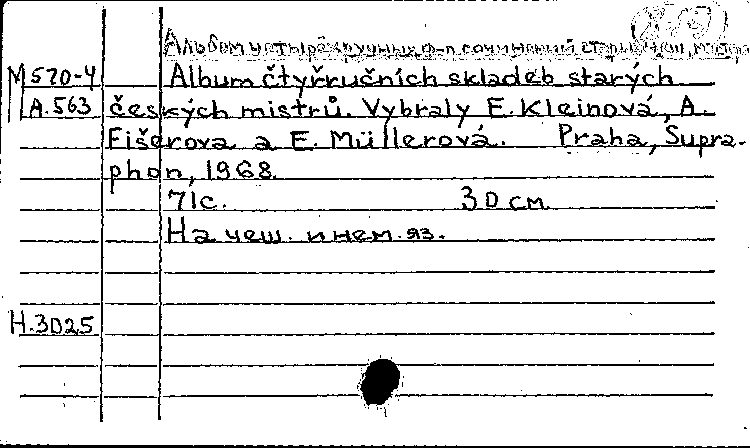 Альбом четырёхручных ф-п. сочинений стар. чеш.
М 570-4 Album čtyřručních skladeb starých
A.563 českých mistrů. Vybraly E. Kleinová, A.
Fišerova a E. Müllerová. Praha, Supra-
phon, 1968.
71с. 30 см
На чеш. и нем. яз.
Н.3025